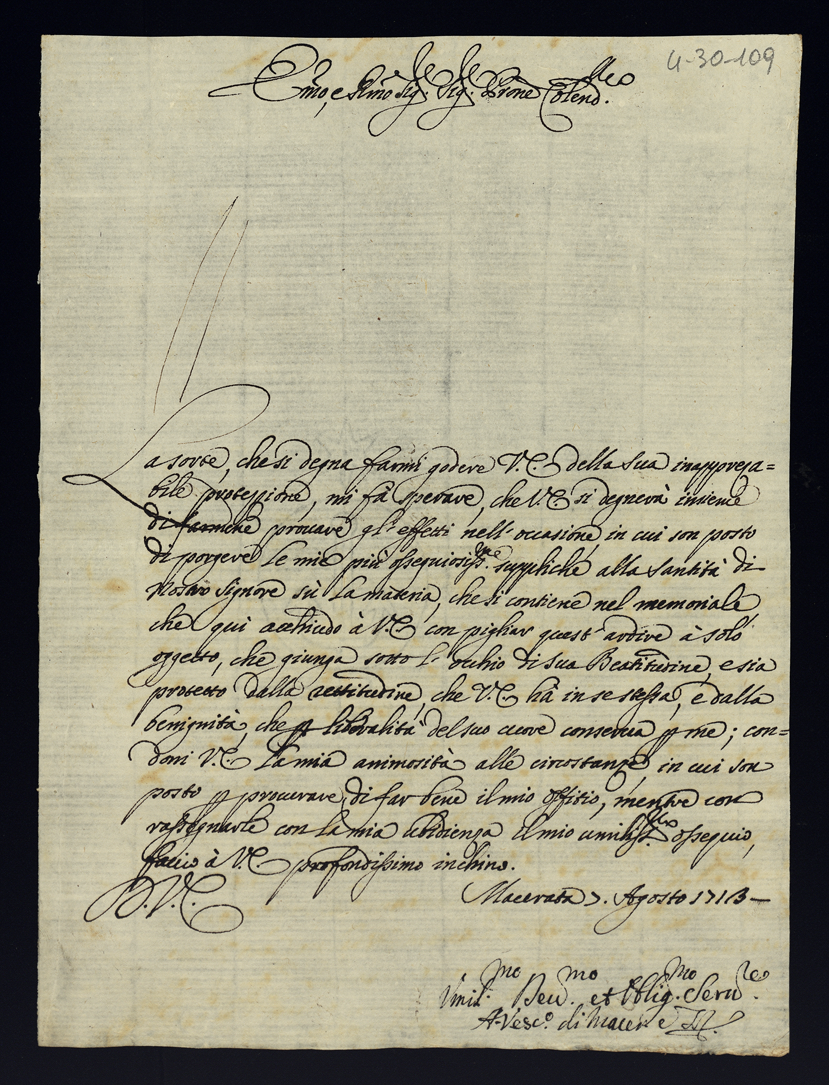 4-30-109
Emo, e Rmo Sig.re Sig.re Prone Colend.mo
La sorte, che si degna farmi godere V.E. della sua inapprega=
bile protezzione, mi fà sperare, che V.E. si degnerà insieme
di farmene provare gl'effetti nell'occasione, in cui son posto
di porgere le mie più ossequiosiss.me suppliche alla Santità di
Nostro Signore sù la materia, che si contiene nel memoriale
che quì acchiudo à V.E. con pigliar quest'ardire à solo
oggetto, che giunga sotto l'occhio di Sua Beatitudine, e sia
protetto dalla rettitudine, che V.E. hà in se stessa, e dalla
benignità, che p liberalità del suo cuore conserva p me; con=
doni V.E. la mia animosità alle circostanze, in cui son
posto p procurare, di far bene il mio offitio, mentre con
rassegnarle con la mia ubidienza il mio umiliss.mo ossequio,
faccio à V.E. profondissimo inchino.
D.V.E.
Macerata 7. Agosto 1713
Umil.mo Dev.mo et Oblig.mo Serv.re
A. Vesc.o di Macer e T.